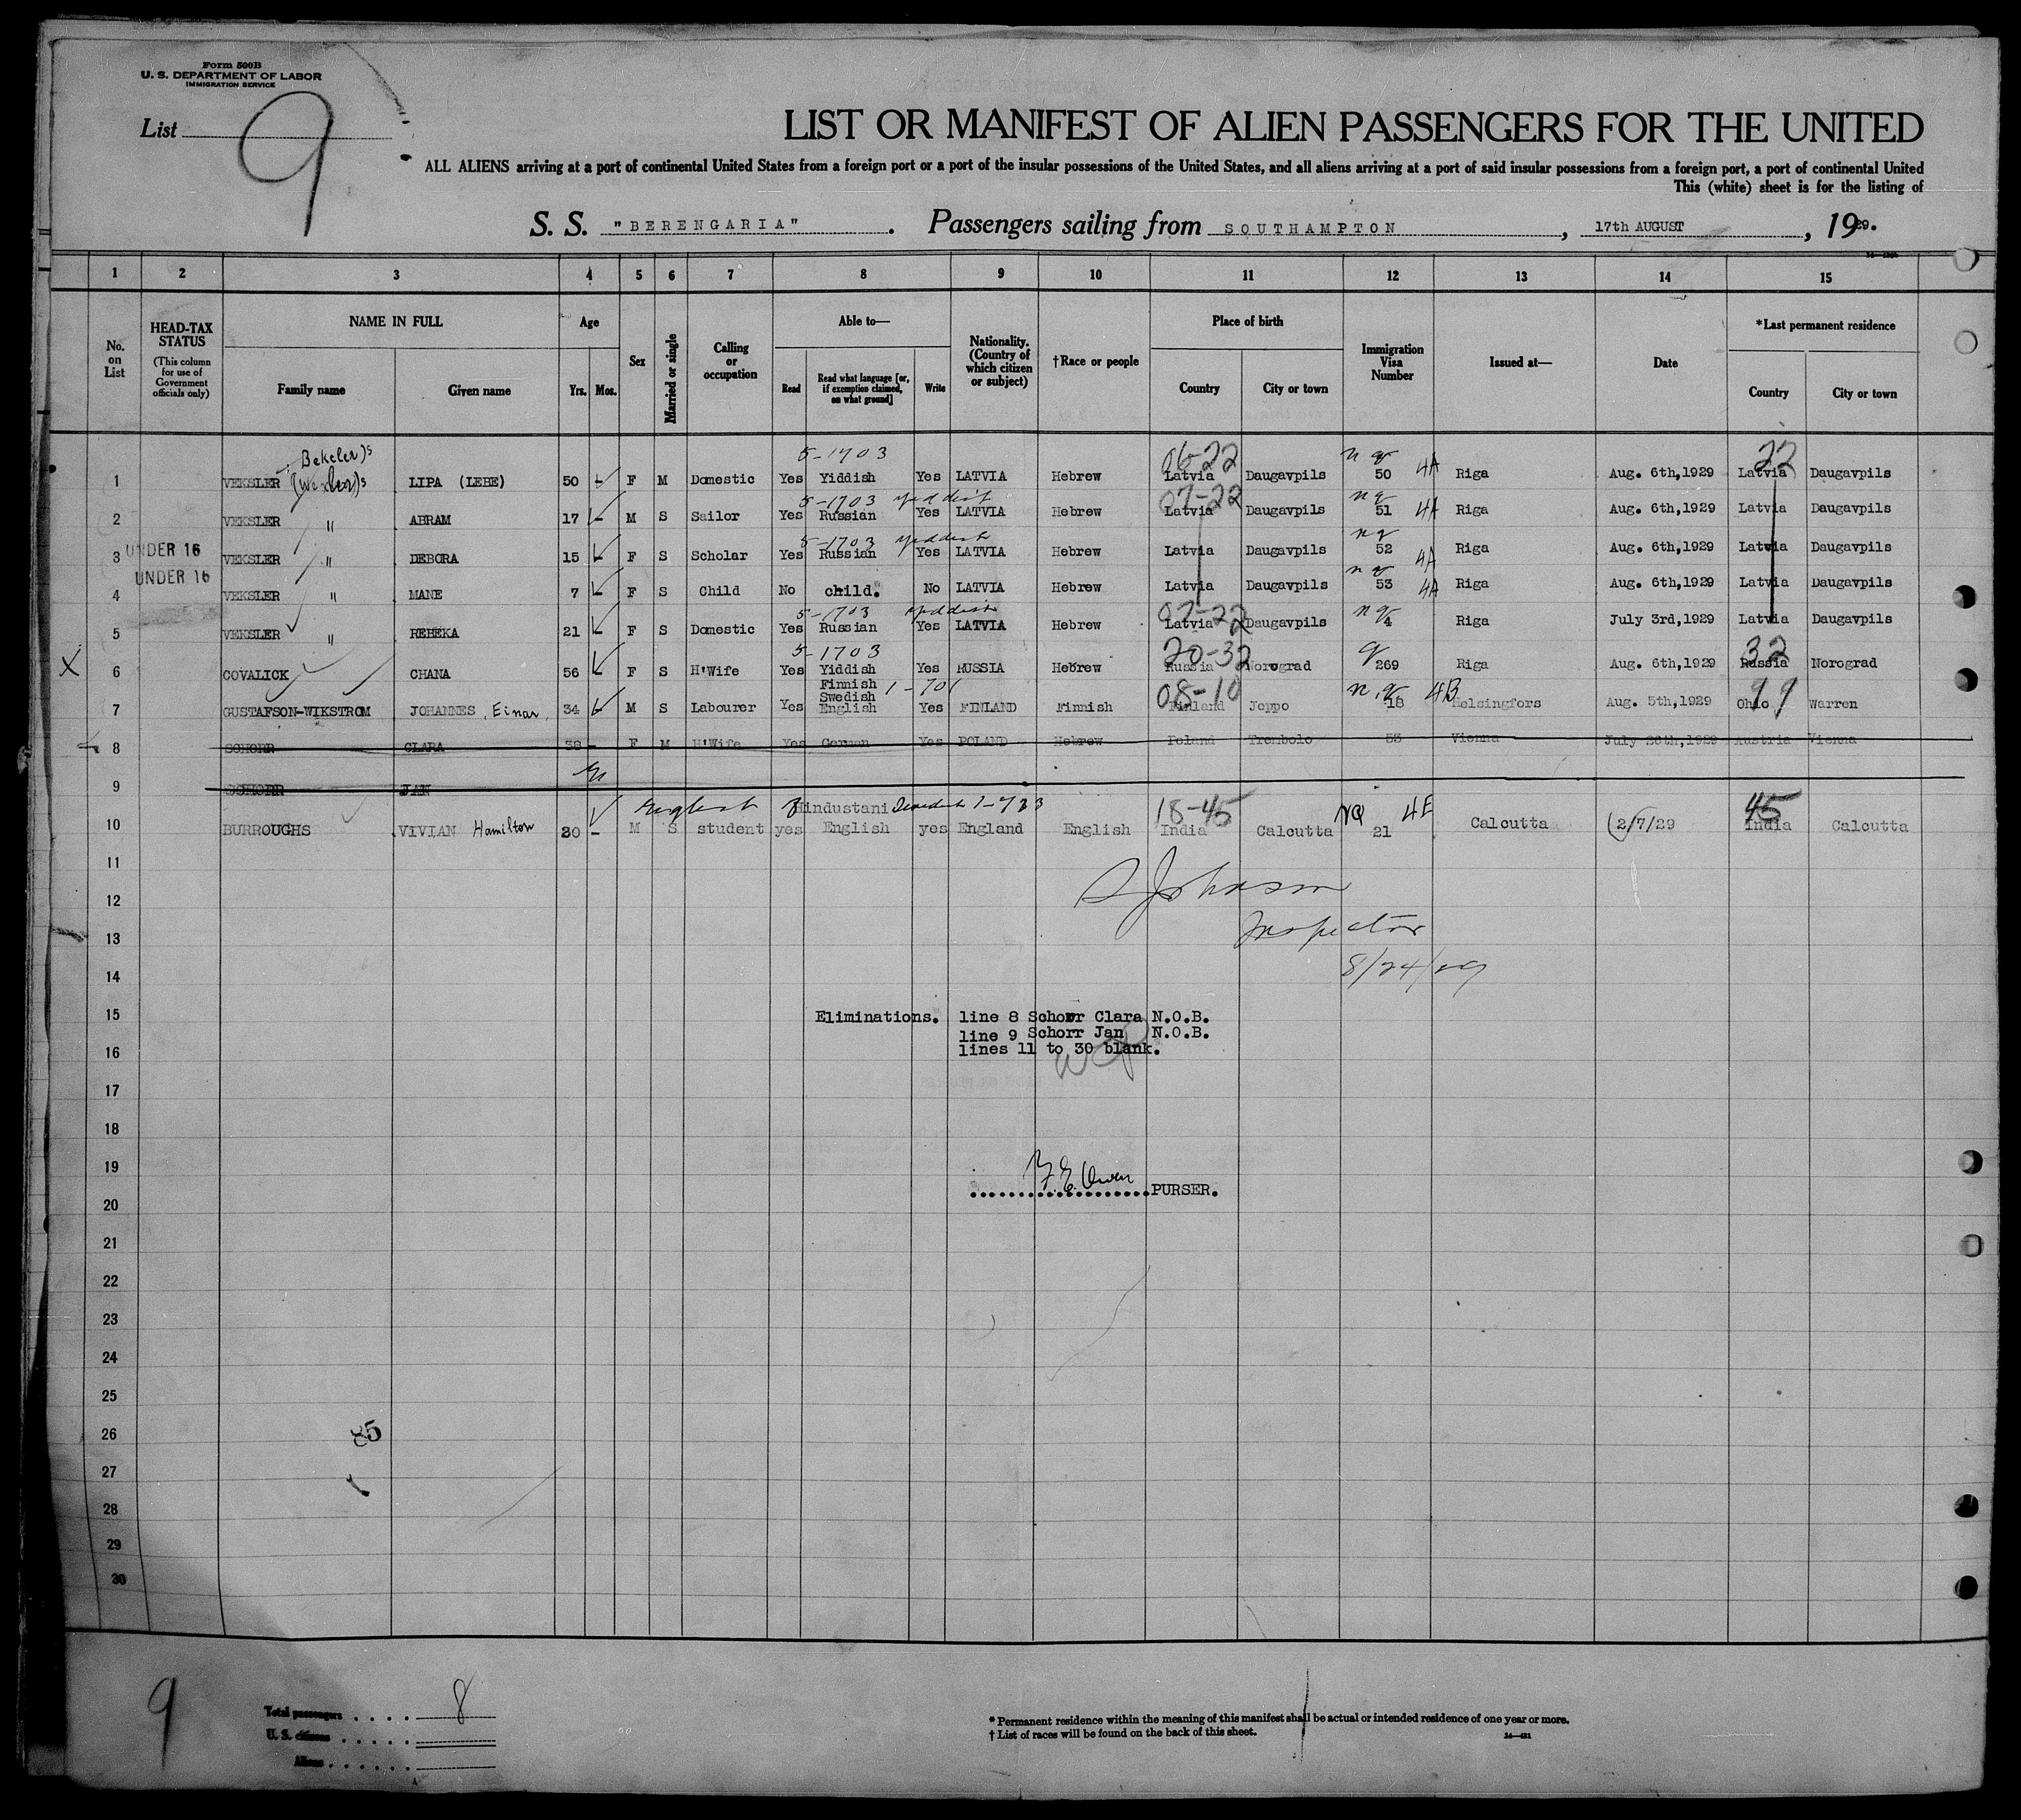 Form 500B
U. S. DEPARTMENT OF LABOR
IMMIGRATION SERVICE
List 9
LIST OR MANIFEST OF ALIEN PASSENGERS FOR THE UNITED
ALL ALIENS arriving at a port of continental United States from a foreign port or a port of the insular possessions of the United States, and all aliens arriving at a port of said insular possessions from a foreign port, a port of continental United
This (white) sheet is for the listing of
S. S. "BERENGARIA". Passengers sailing from SOUTHAMPTON, 17th AUGUST, 1929.
1 2 3 4 5 6 7 8 9 10 11 12 13 14 15
No. on List
HEAD-TAX STATUS
(This column for use of Government officials only)
NAME IN FULL
Family name
Given name
Age
Yrs. Mos.
Sex
Married or single
Calling or occupation
Able to—
Read
Read what language [or, if exemption claimed, on what ground]
Write
Nationality. (Country of which citizen or subject)
†Race or people
Place of birth
Country
City or town
Immigration Visa Number
Issued at—
Date
*Last permanent residence
Country
City or town
5-1703 06-22 nq 4A 22
1 VEKSLER LIPA (LEBE) 50 - F M Domestic Yes Yiddish Yes LATVIA Hebrew Latvia Daugavpils 50 Riga Aug. 6th,1929 Latvia Daugavpils
5-1703 Yiddish 07-22 nq 4A
2 VEKSLER " ABRAM 17 - M S Sailor Yes Russian Yes LATVIA Hebrew Latvia Daugavpils 51 Riga Aug. 6th,1929 Latvia Daugavpils
5-1703 Yiddish nq 4A
UNDER 16
3 VEKSLER " DEBORA 15 - F S Scholar Yes Russian Yes LATVIA Hebrew Latvia Daugavpils 52 Riga Aug. 6th,1929 Latvia Daugavpils
UNDER 16
nq 4A
4 VEKSLER " MANE 7 - F S Child No child. No LATVIA Hebrew Latvia Daugavpils 53 Riga Aug. 6th,1929 Latvia Daugavpils
5-1703 Yiddish 07-22 nq
5 VEKSLER " REBEKA 21 - F S Domestic Yes Russian Yes LATVIA Hebrew Latvia Daugavpils 4 Riga July 3rd,1929 Latvia Daugavpils
5-1703 20-32 q 32
X 6 COVALICK CHANA 56 F S H'Wife Yes Yiddish Yes RUSSIA Hebrew Russia Norograd 269 Riga Aug. 6th,1929 Russia Norograd
Finnish
Swedish 08-10 nq 4B
7 GUSTAFSON-WIKSTROM JOHANNES, Einar 34 - M S Labourer Yes English Yes FINLAND Finnish Finland Jeppo 18 Helsingfors Aug. 5th,1929 Ohio Warren
8 SCHORR CLARA 38 - F M H'Wife Yes German Yes POLAND Hebrew Poland Trembolo 53 Vienna July 26th,1929 Austria Vienna
9 SCHORR JAN
English Hindustani 18-45 NQ 4E 45
10 BURROUGHS VIVIAN Hamilton 30 - M S student yes English yes England English India Calcutta 21 Calcutta 2/7/29 India Calcutta
11
12
13
14
S Johnson
Inspector
8/24/29
15
16
Eliminations. line 8 Schorr Clara N.O.B.
line 9 Schorr Jan N.O.B.
lines 11 to 30 blank.
17
18
19
20
F. E. Owen PURSER.
21
22
23
24
25
26
27
28
29
30
85
9
Total passengers . . . . 8
U. S. citizens . . . . .
Aliens . . . . . .
* Permanent residence within the meaning of this manifest shall be actual or intended residence of one year or more.
† List of races will be found on the back of this sheet.